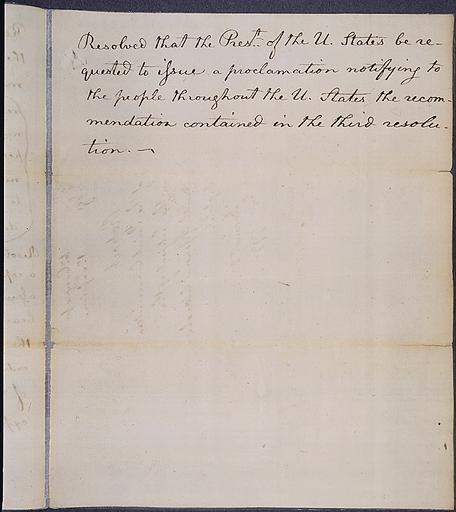 Resolved that the Pres.t of the U. States be re-
quested to issue a proclamation notifying to
the people throughout the U. States the recom-
mendation contained in the third resolu-
tion. —